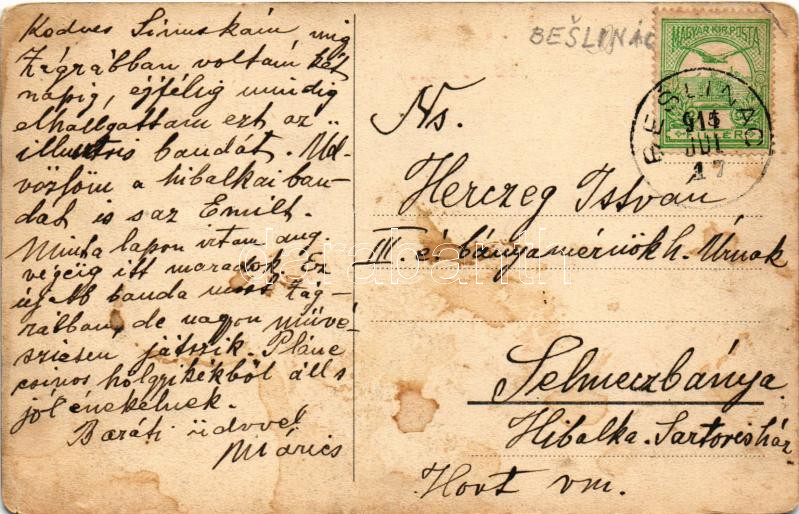 Kedves Sinuskám míg
Zágrábban voltam két
napig, éjfélig mindig
elhallgattam ezt az
illustris bandát. Üd-
vözlöm a hibalkai ban-
dát is s az Emilt.
Minta lapon irtam aug.
végeig itt maradok. Ez
banda most Zág-
rábban, de nagyon müvé-
sziesen játszik. Pláne
csinos hölgyikékböl áll s
jól énekelnek.
Baráti üdvvel
Márics
BEŠLINÁC
MAGYAR KIR. POSTA
FILLÉR
BESLINAC
915
JUL
17
Ns.
Herczeg Istvan
III. é. bányamérnök h. Úrnak
Selmeczbánya
Hibalka-Sartorisház
Hont vm.
darabanth